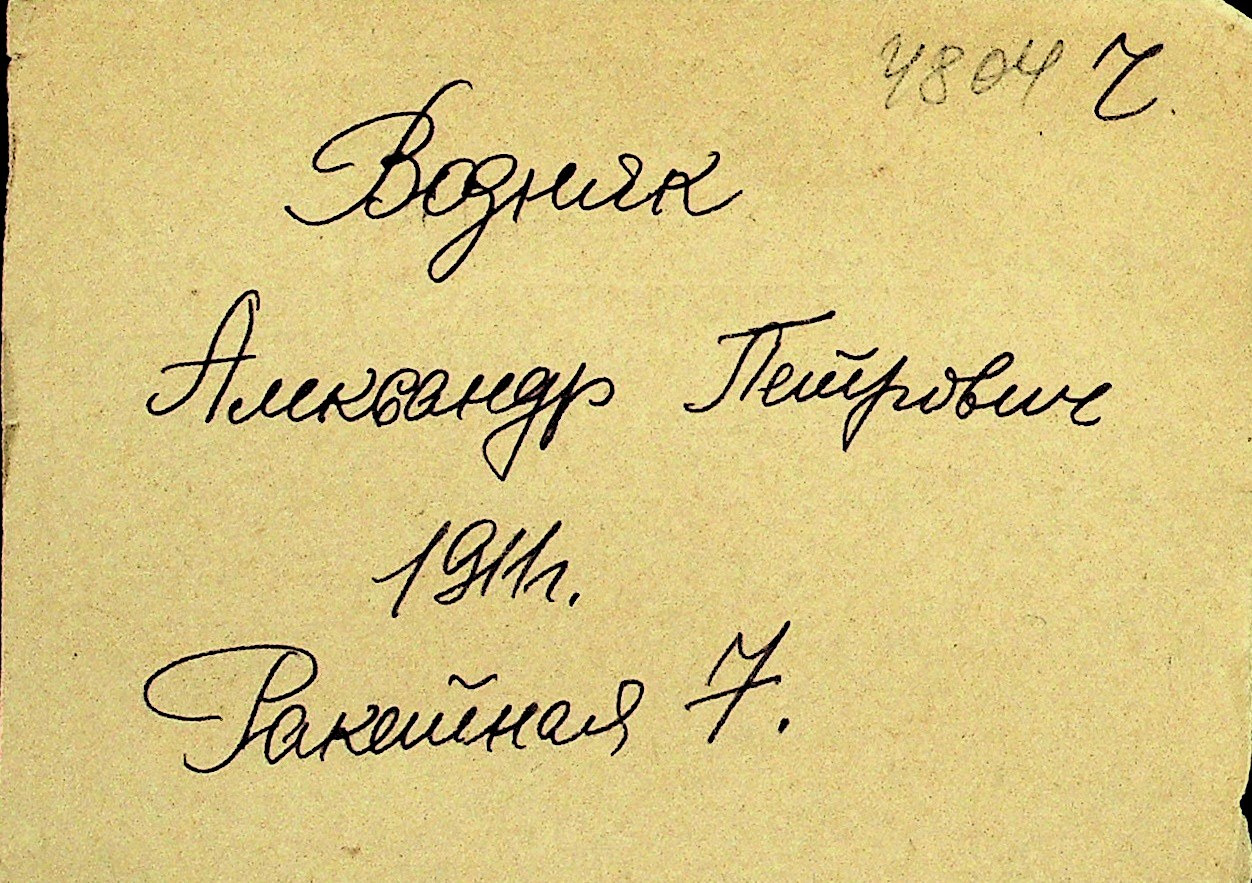 4804 Ч.
Водняк
Александр Петрович
1911г.
Ракетная 7.